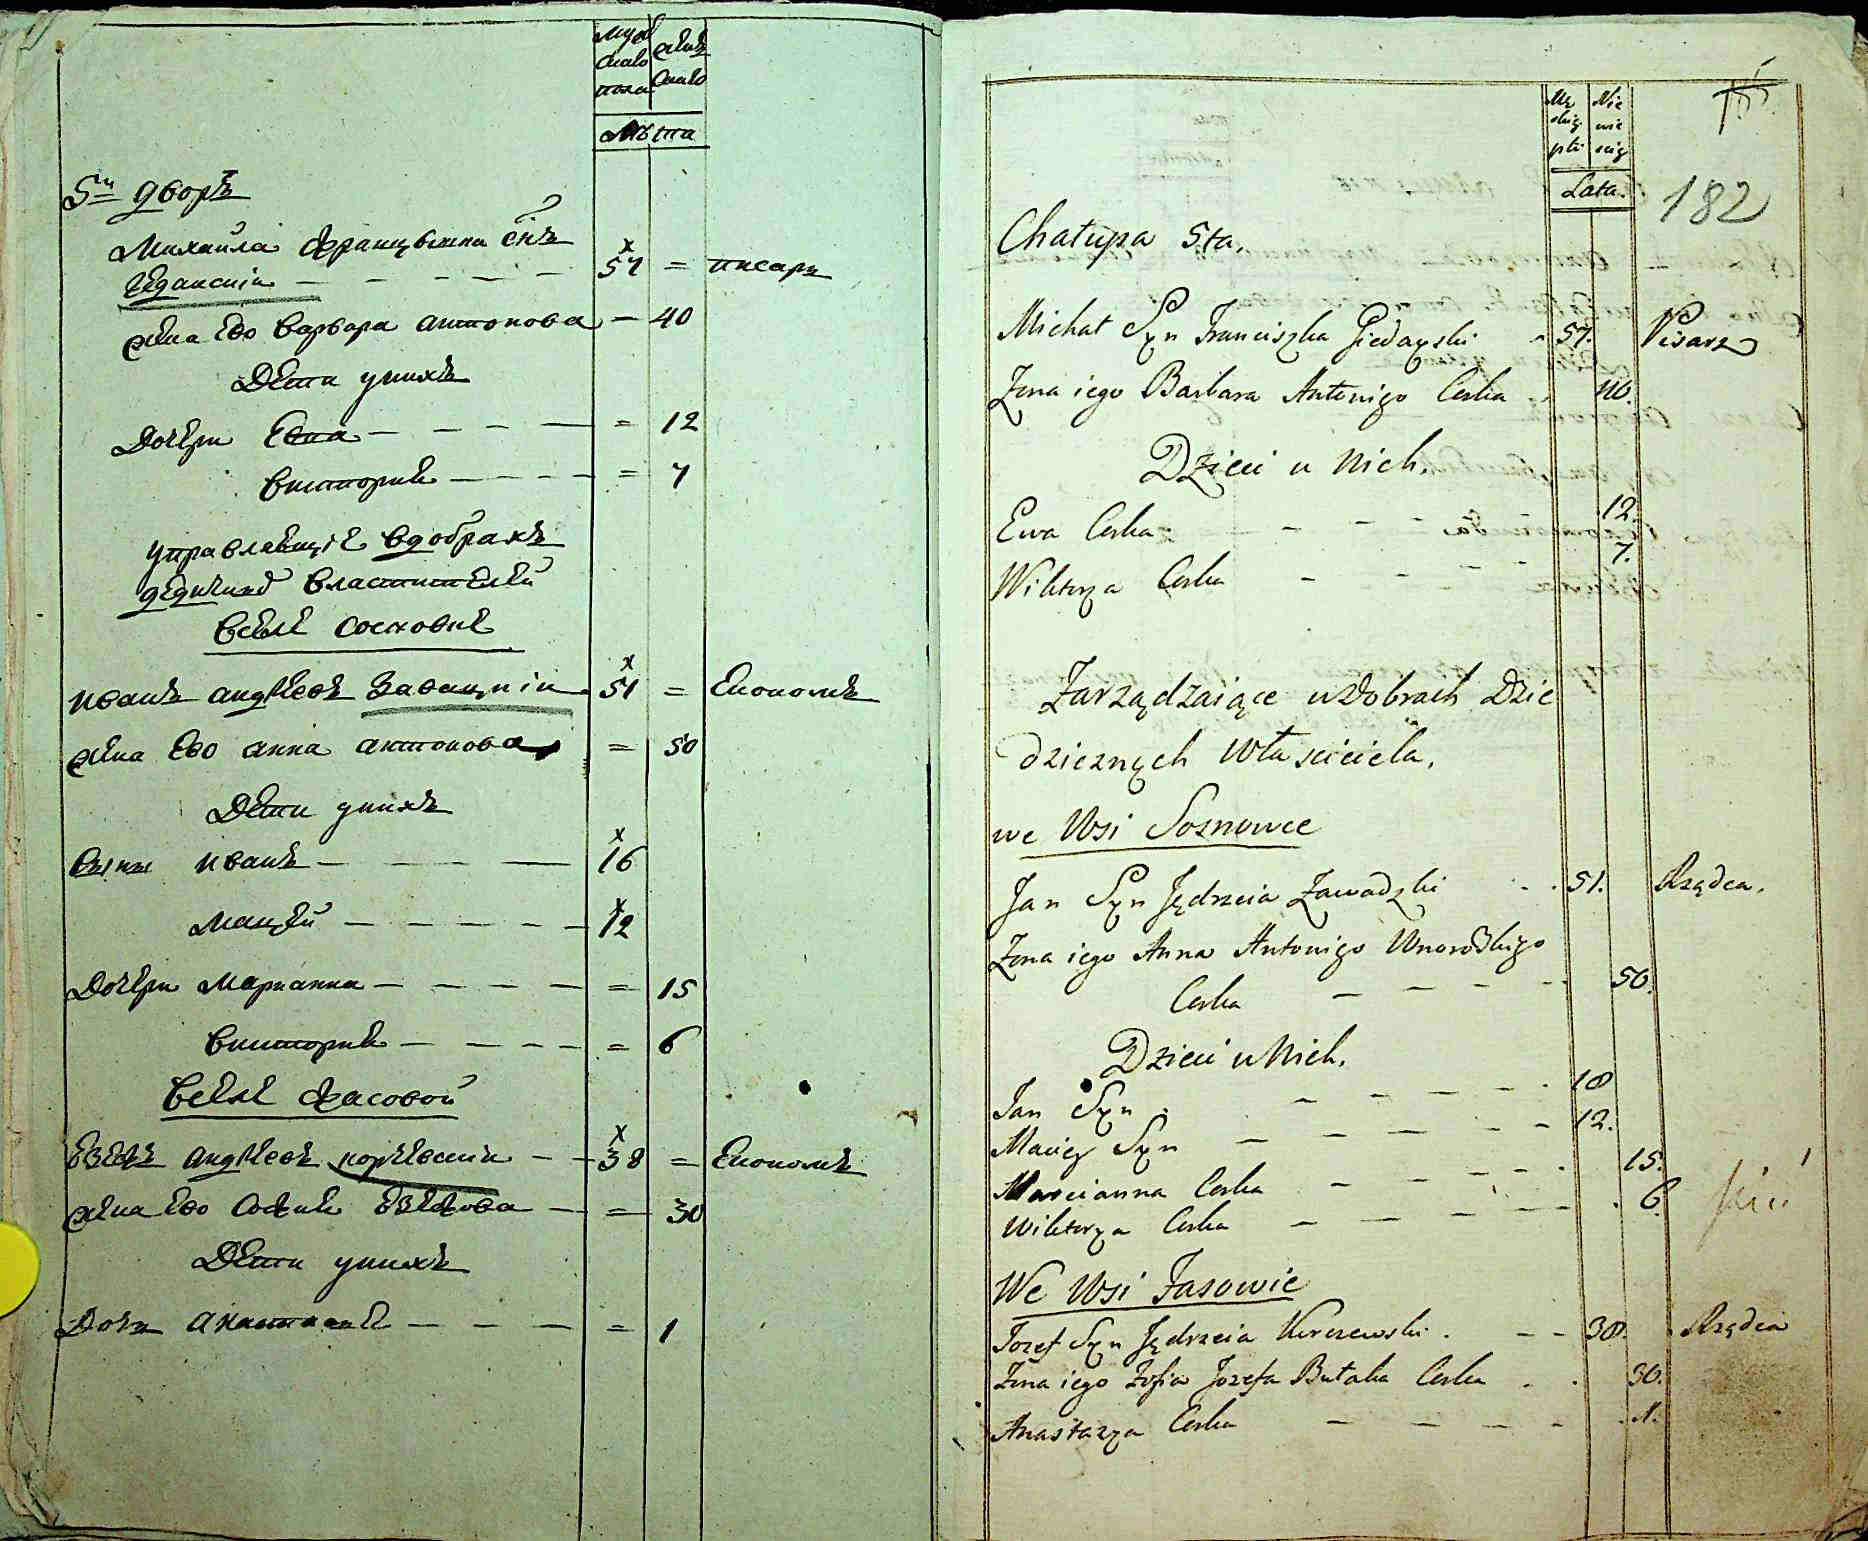 Муж
скаго
пола
женс
скаго
Лѣта
5й дворъ
Михайла Францышка сынъ
Геданскій — — — — 57 = писарь
жена Его Варвара Антонова — 40
Дети унихъ
Дочери Евва — — — — = 12
Виктория — — — — = 7
Управляющие вдобрахъ
дедичнօ Властителей
Вселе Сосновце
Иванъ Андреевъ Завацкий 51 = Економъ
жена Его Анна Антонова = 50
Дети унихъ
Сыны Иванъ — — — 16
Мацей — — — — — 12
Дочери Марианна — — — — = 15
Виктория — — — — = 6
Вселе Фасовой
Езефъ Андреевъ Корчевский — — 38 = Економъ
жена Его София Езефова — = 30
Дети унихъ
Дочь Анастасия — — — = 1
Mę
skiey
płci
Nie
wie
sciey
Lata.
182
Chałupa 5ta.
Michał Syn Franciszka Giedayski 57. Pisarz
Żona iego Barbara Antoniego Corka 40.
Dzieci u Nich.
Ewa Corka — — — — 12.
Wiktorya Corka — — — — 7.
Zarządzaiące w Dobrach Dzie
dzicznych Własciciela.
we Wsi Sosnowce
Jan Syn Jędrzeia Zawadzki . . 51. Rządca.
Żona iego Anna Antoniego Unorodzkiego
Corka — — — — 50.
Dzieci u Nich.
Jan Syn — — — — 18
Maciey Syn — — — — 12.
Marcianna Corka — — — — 15.
Wiktorya Corka — — — — 6.
We Wsi Fasowie
Jozef Syn Jędrzeia Korczewski . — — 38. Rządca
Żona iego Zofia Jozefa Butaka Corka . . 30.
Anastazya Corka — — — — 1.